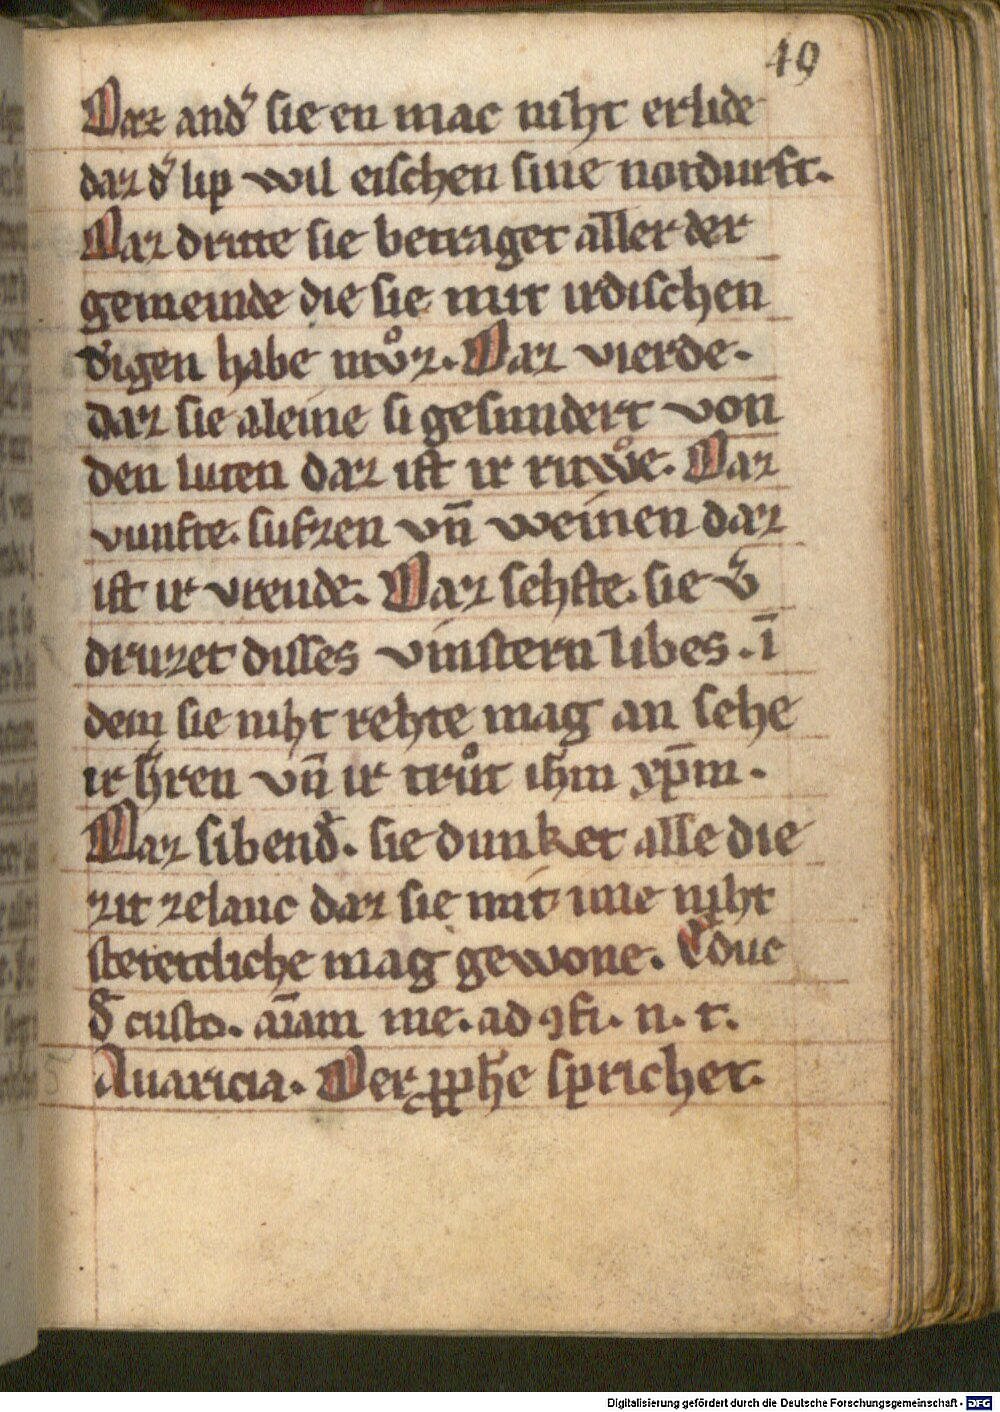 49
Daz and᷑ sie en mac niht erlide
daz d᷑ lip wil eischen sine notdurft.
Daz dritte sie betraget aller der
gemeinde die sie mit irdischen
digen habe mvͦz. Daz vierde.
daz sie aleine si gesundert von
den luten daz ist ir ruwͦe. Daz
vunfte. sufzen vn̄ weinen daz
ist ir vreude. Daz sehste. sie v᷑
druzet disses vinstern libes. ī
dem sie niht rehte mag an sehe
ir h᷑ren vn̄ ir truͦt ihm xp̄m.
Daz sibend᷑. sie dunket alle die
zit zelanc daz sie mit ime niht
stetetcliche mag gewone.
custo. aīam me. ad ꝯfi. n. t.
Auaricia. Der pphe sprichet.
Digitalisierung gefördert durch die Deutsche Forschungsgemeinschaft - DFG